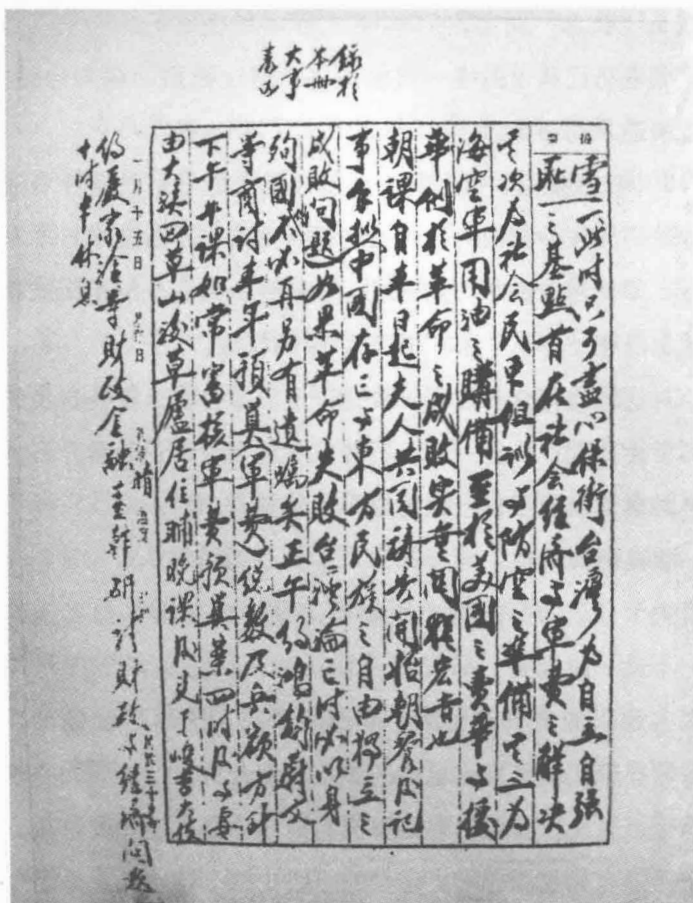 錄於
本冊
大事
表內
雪二此時只可盡心保衛台灣為自立自強
之基點首在社會經濟與軍費之解決
其次為社會民眾組訓與防空之準備其三為
海空軍用油之購備至於美國之賣華與援
華則於革命之成敗實無關宏旨也
朝課自本日起夫人共同禱告開始朝餐後記
事手擬中國存亡與東方民族之自由獨立之
成敗問題如果革命失敗台灣淪亡時必以身
殉國不必再另有遺囑矣正午約鴻鈞尉文
等商討本年預算軍費總數及兵額方針
下午午課如常審核軍費預算第四時後與妻
由大溪回草山後草廬居住晡晚課後
一月十五日
約嚴家淦等財政金融主幹研討財政與經濟問題
十時半休息